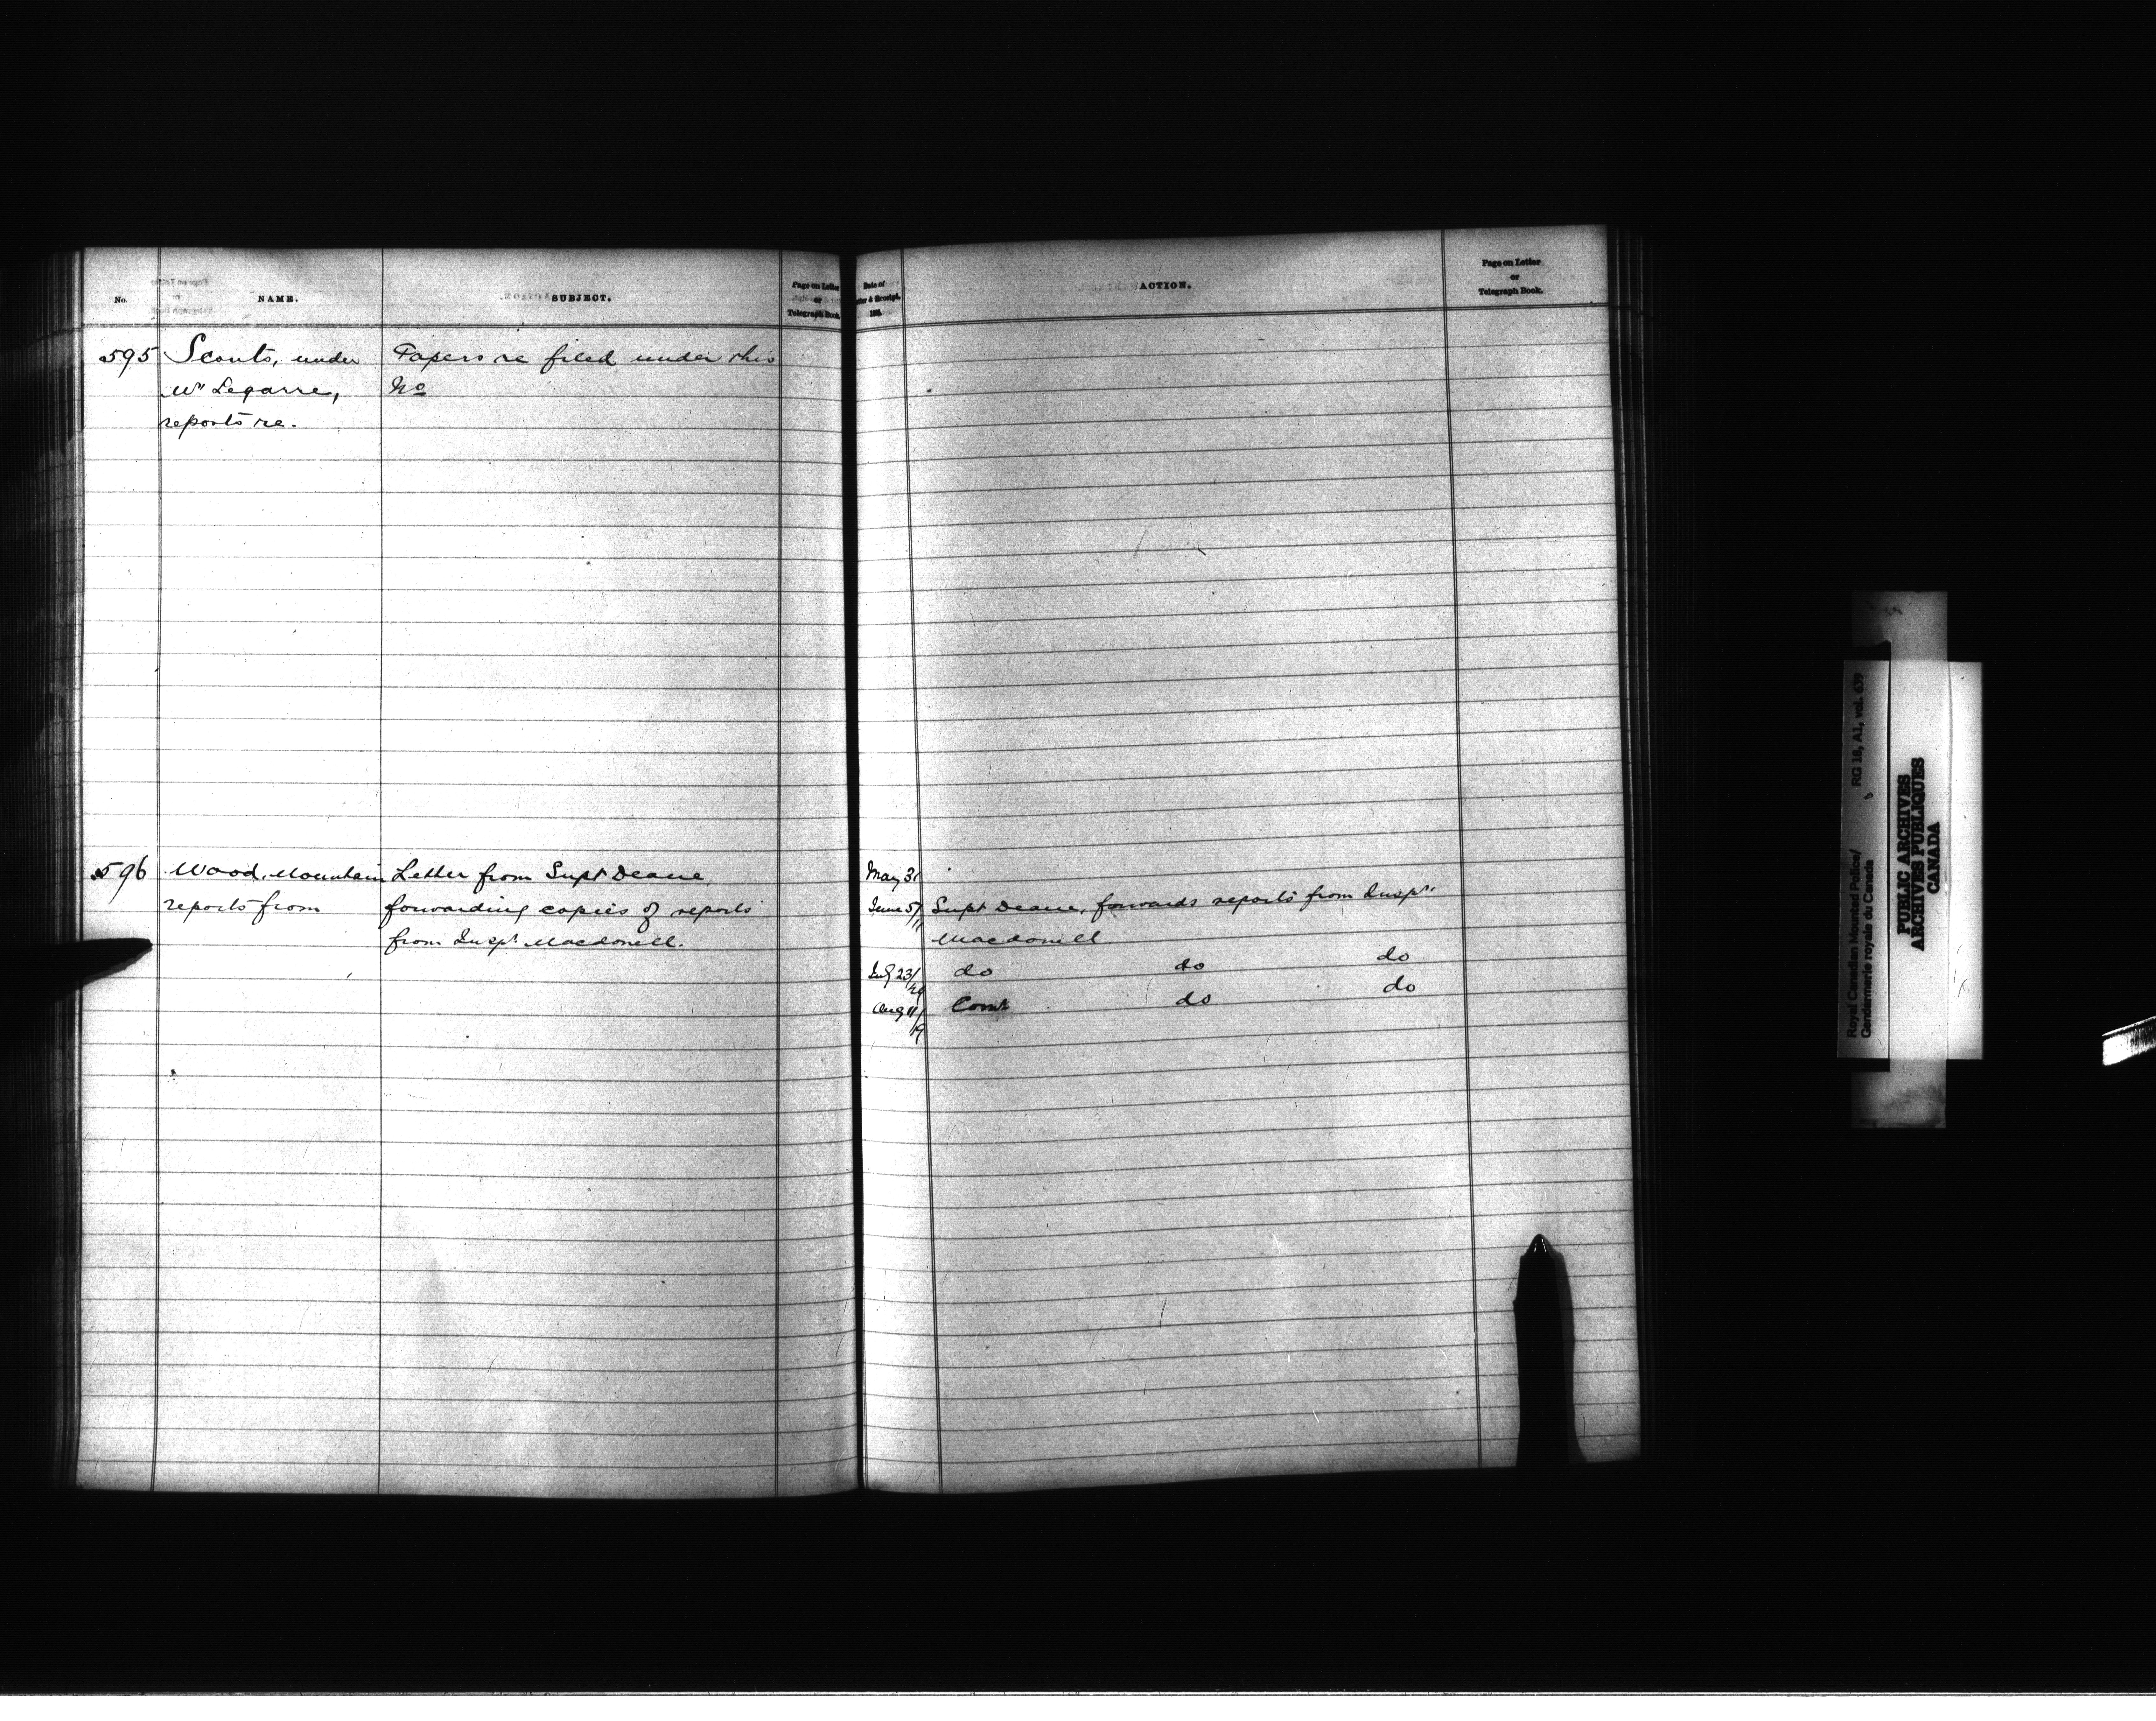 No.
NAME.
SUBJECT.
Page on Letter
or
Telegraph Book.
595 Scouts, under Papers re filed under this
Mr Legarre, No
reports re.
596 Wood Mountain Letter from Supt Deane,
reports from forwarding copies of reports
from Inspr Macdonell.
Date of
Letter & Receipt.
188
ACTION.
Page on Letter
or
Telegraph Book.
May 31
June 5/11 Supt Deane, forwards reports from Inspr
Macdonell
July 23/29 do do do
Aug 11/19 Comr do do
Royal Canadian Mounted Police/
Gendarmerie royale du Canada
RG 18, A1, vol. 639
PUBLIC ARCHIVES
ARCHIVES PUBLIQUES
CANADA